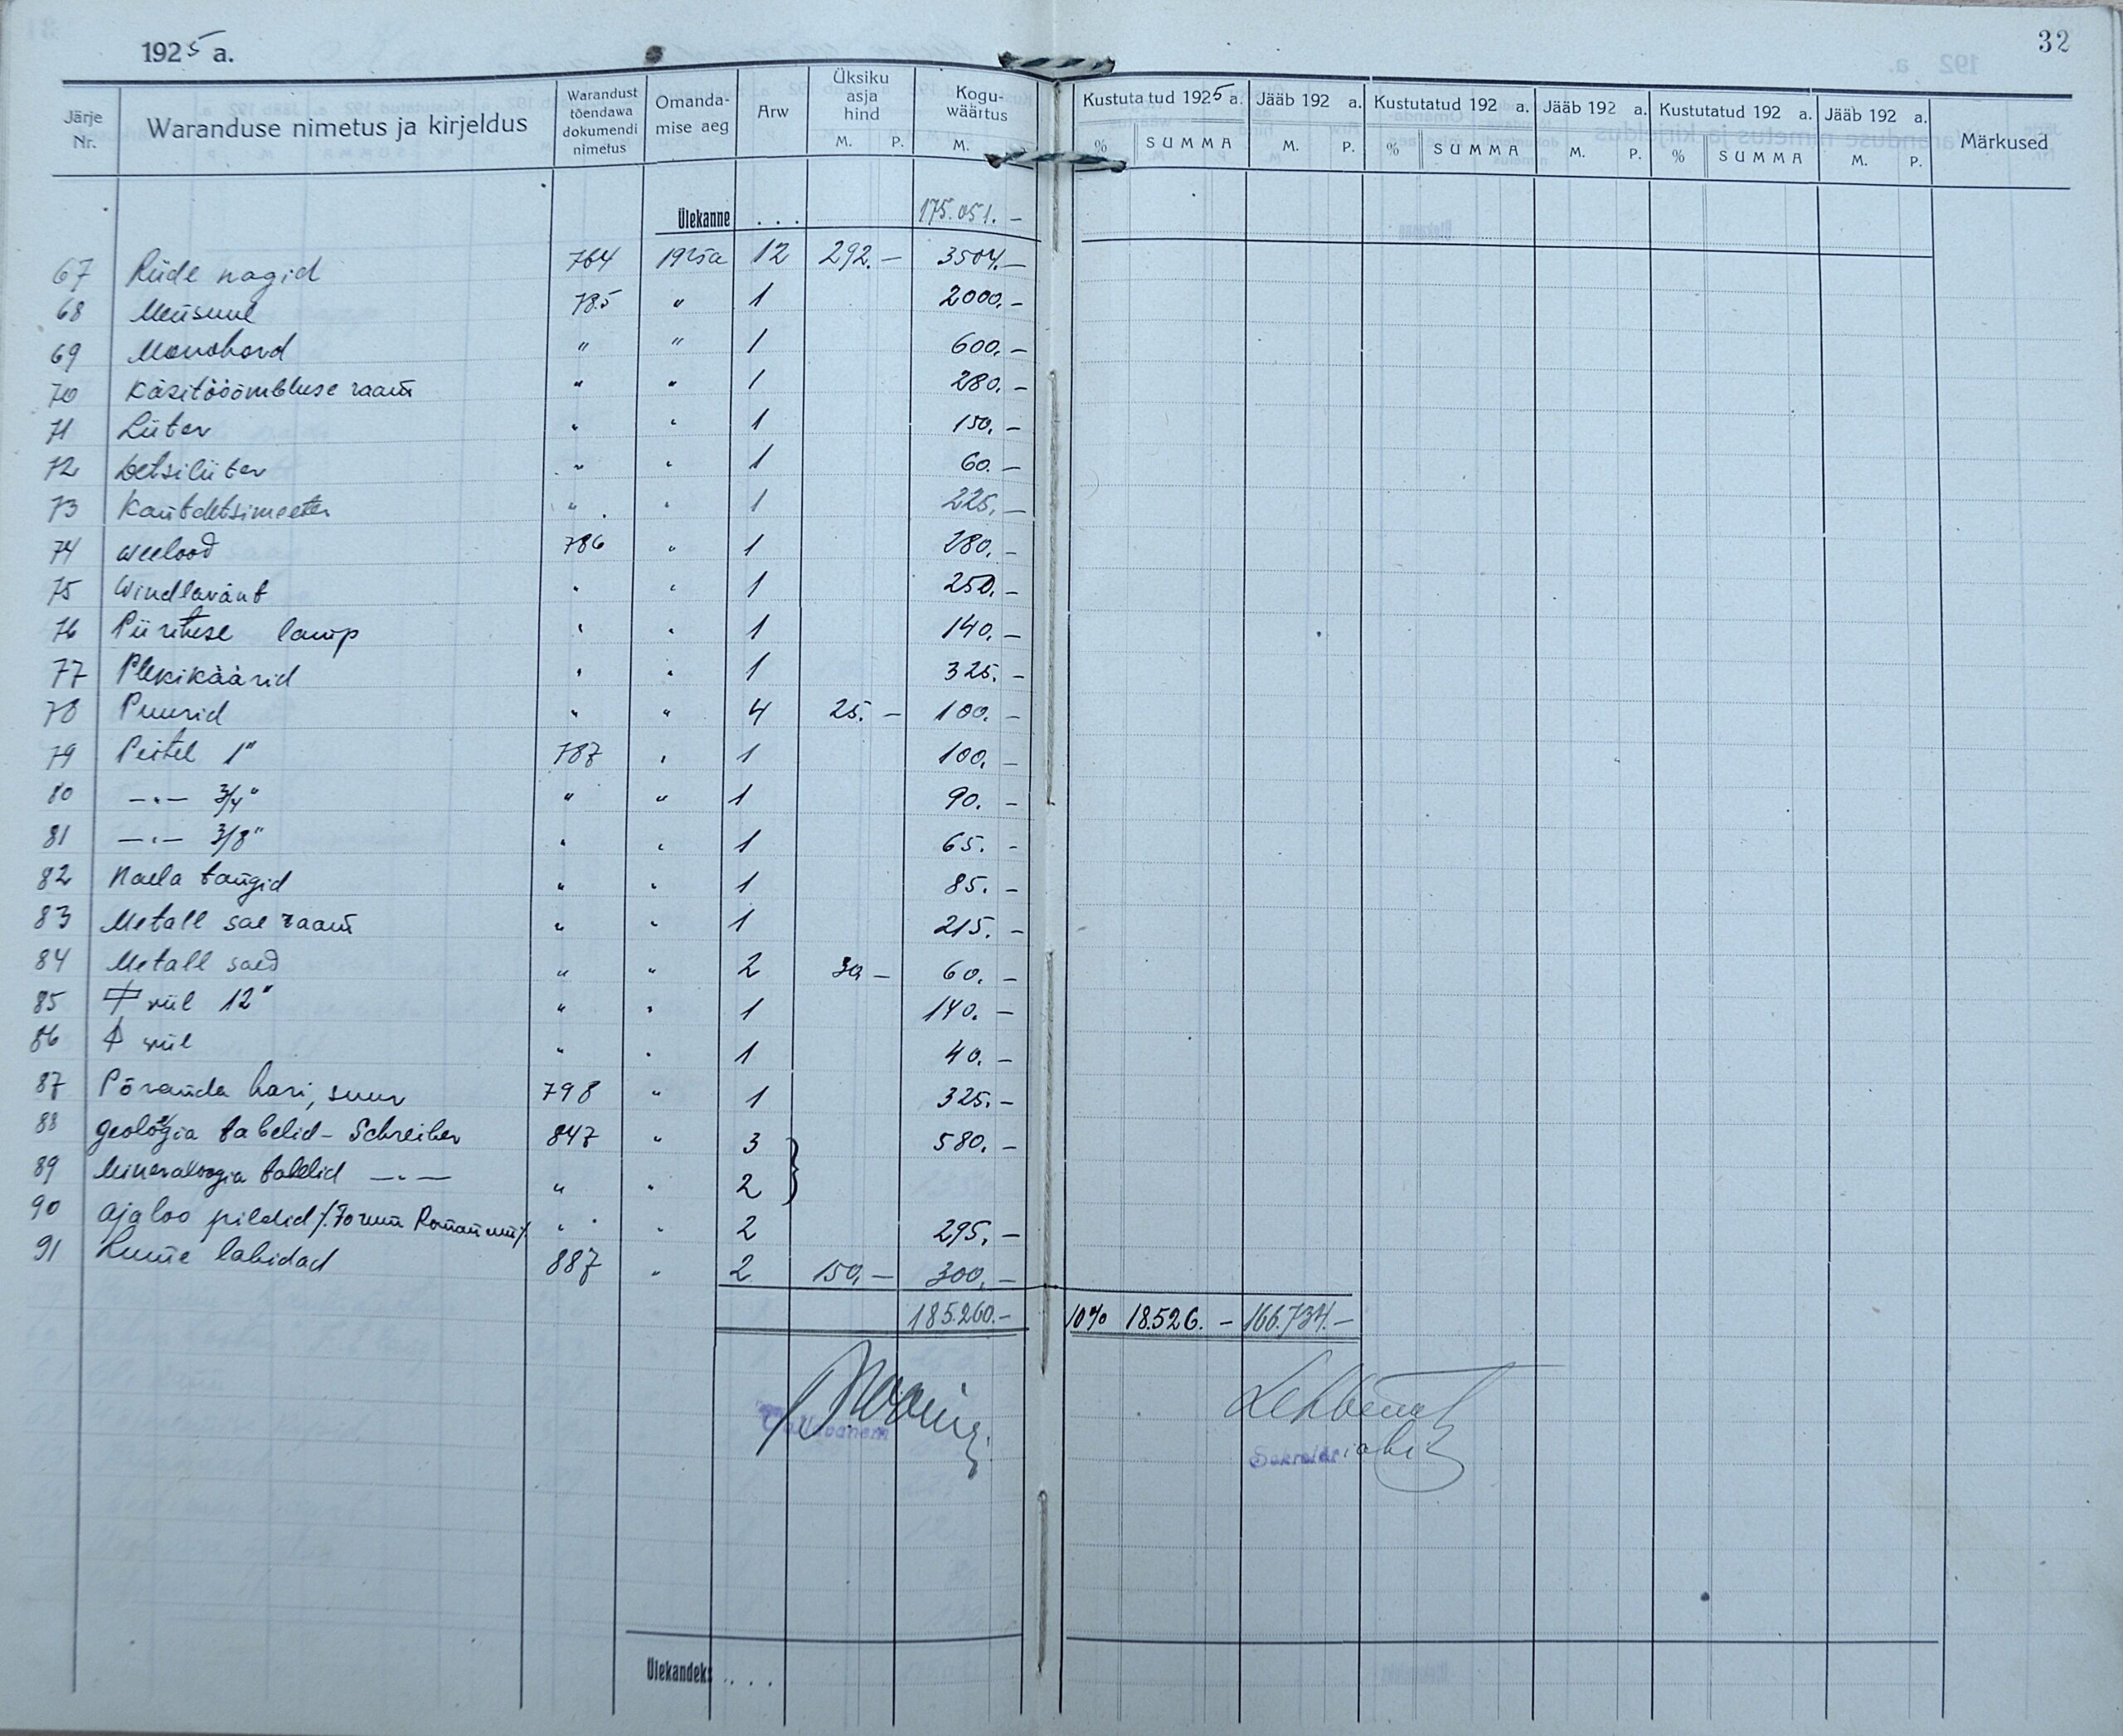 32
1925 a.
Järje Nr. Waranduse nimetus ja kirjeldus Warandust tõendawa dokumendi nimetus Omanda-mise aeg Arw Üksiku asja hind M. P. Kogu-wäärtus M. Kustutatud 1925 a. % SUMMA Jääb 192 a. M. P. Kustutatud 192 a. % SUMMA Jääb 192 a. M. P. Kustutatud 192 a. % SUMMA Jääb 192 a. M. P. Märkused
Ülekanne . . . 175.051.-
67 Riide nagid 764 1925a 12 292.- 3504.-
68 Meisuul 785 " 1 2000.-
69 Monohord " " 1 600.-
70 Käsitööömbluse raam " " 1 280.-
71 Liiter " " 1 150.-
72 Detsiliiter " " 1 60.-
73 Kantdetsimeeter " " 1 225.-
74 Weelood 786 " 1 280.-
75 Windlavänt " " 1 250.-
76 Piirituse lamp " " 1 140.-
77 Plekikäärid " " 1 325.-
78 Puurid " " 4 25.- 100.-
79 Peitel 1" 787 " 1 100.-
80 -"- 3/4" " " 1 90.-
81 -"- 3/8" " " 1 65.-
82 Naela tangid " " 1 85.-
83 Metall sae raam " " 1 215.-
84 Metall saed " " 2 30- 60.-
85 viil 12" " " 1 140.-
86 viil " " 1 40.-
87 Põranda hari, suur 798 " 1 325.-
88 geoloogia tabelid - Schreiber 847 " 3 } 580.-
89 Mineraloogia tabelid -"- " " 2
90 Ajaloo pildid /.Forum Romanum/. " " 2 295.-
91 Lume labidad 887 " 2 150.- 300.-
185.260.- 10% 18.526.- 166.734.-
Vallavanem
Sekretär
Ülekandeks . . . .